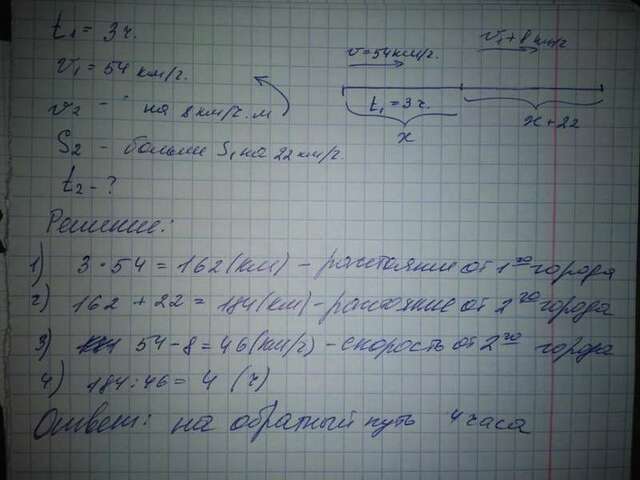 t₁ = 3 ч.
v₁ = 54 км/г.
v₂ - на 8 км/ч. м
S₂ - больше S₁ на 22 км/г.
t₂ - ?
v = 54 км/г.
v₁ + 8 км/г
t₁ = 3 г.
x
x + 22
Решение:
1) 3 · 54 = 162 (км) - расстояние от 1го города
2) 162 + 22 = 184 (км) - растояние от 2го города
3) 54 - 8 = 46 (км/г) - скорость от 2го города
4) 184 : 46 = 4 (ч)
Ответ: на обратный путь 4 часа